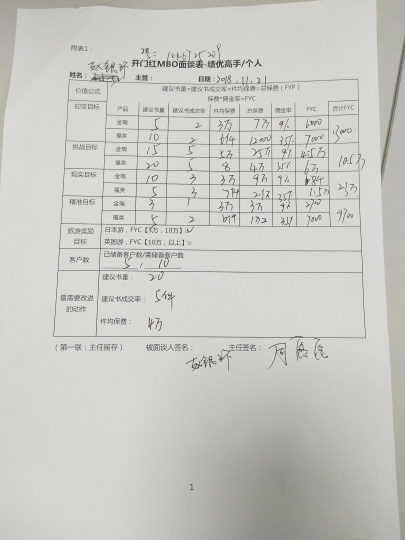 附表1：
开门红MBO面谈表-绩优高手/个人
姓名： 主管： 日期：2018.11.21
价值公式 建议书量*建议书成交率*件均保费=总保费（FYP）
保费*佣金率=FYC
初定目标 产品 建议书量 建议书成交率 件均保费 总保费 佣金率 FYC 合计FYC
金瑞 5 2 3万 7万 9% 6000
福类 10 2 12000 35% 7000 13000
挑战目标 金瑞 15 5 5万 25万 9% 4.5万
福类 20 5 8 4万 35% 6万 10.5万
现实目标 金瑞 10 3 3万 9万 9%
福类 5 3 35% 1.5万 2.3万
精准目标 金瑞 3 1 3万 3万 9% 2700
福类 5 2 35% 7000 9700
旅游奖励目标 日本游，FYC【3万，10万）☑
英国游，FYC【10万，以上】□
客户数 已储备客户数/需储备客户数
5 / 10
最需要改进的动作 建议书量： 20
建议书成交率： 5件
件均保费： 4万
（第一联：主任留存） 被面谈人签名： 主任签名：
1